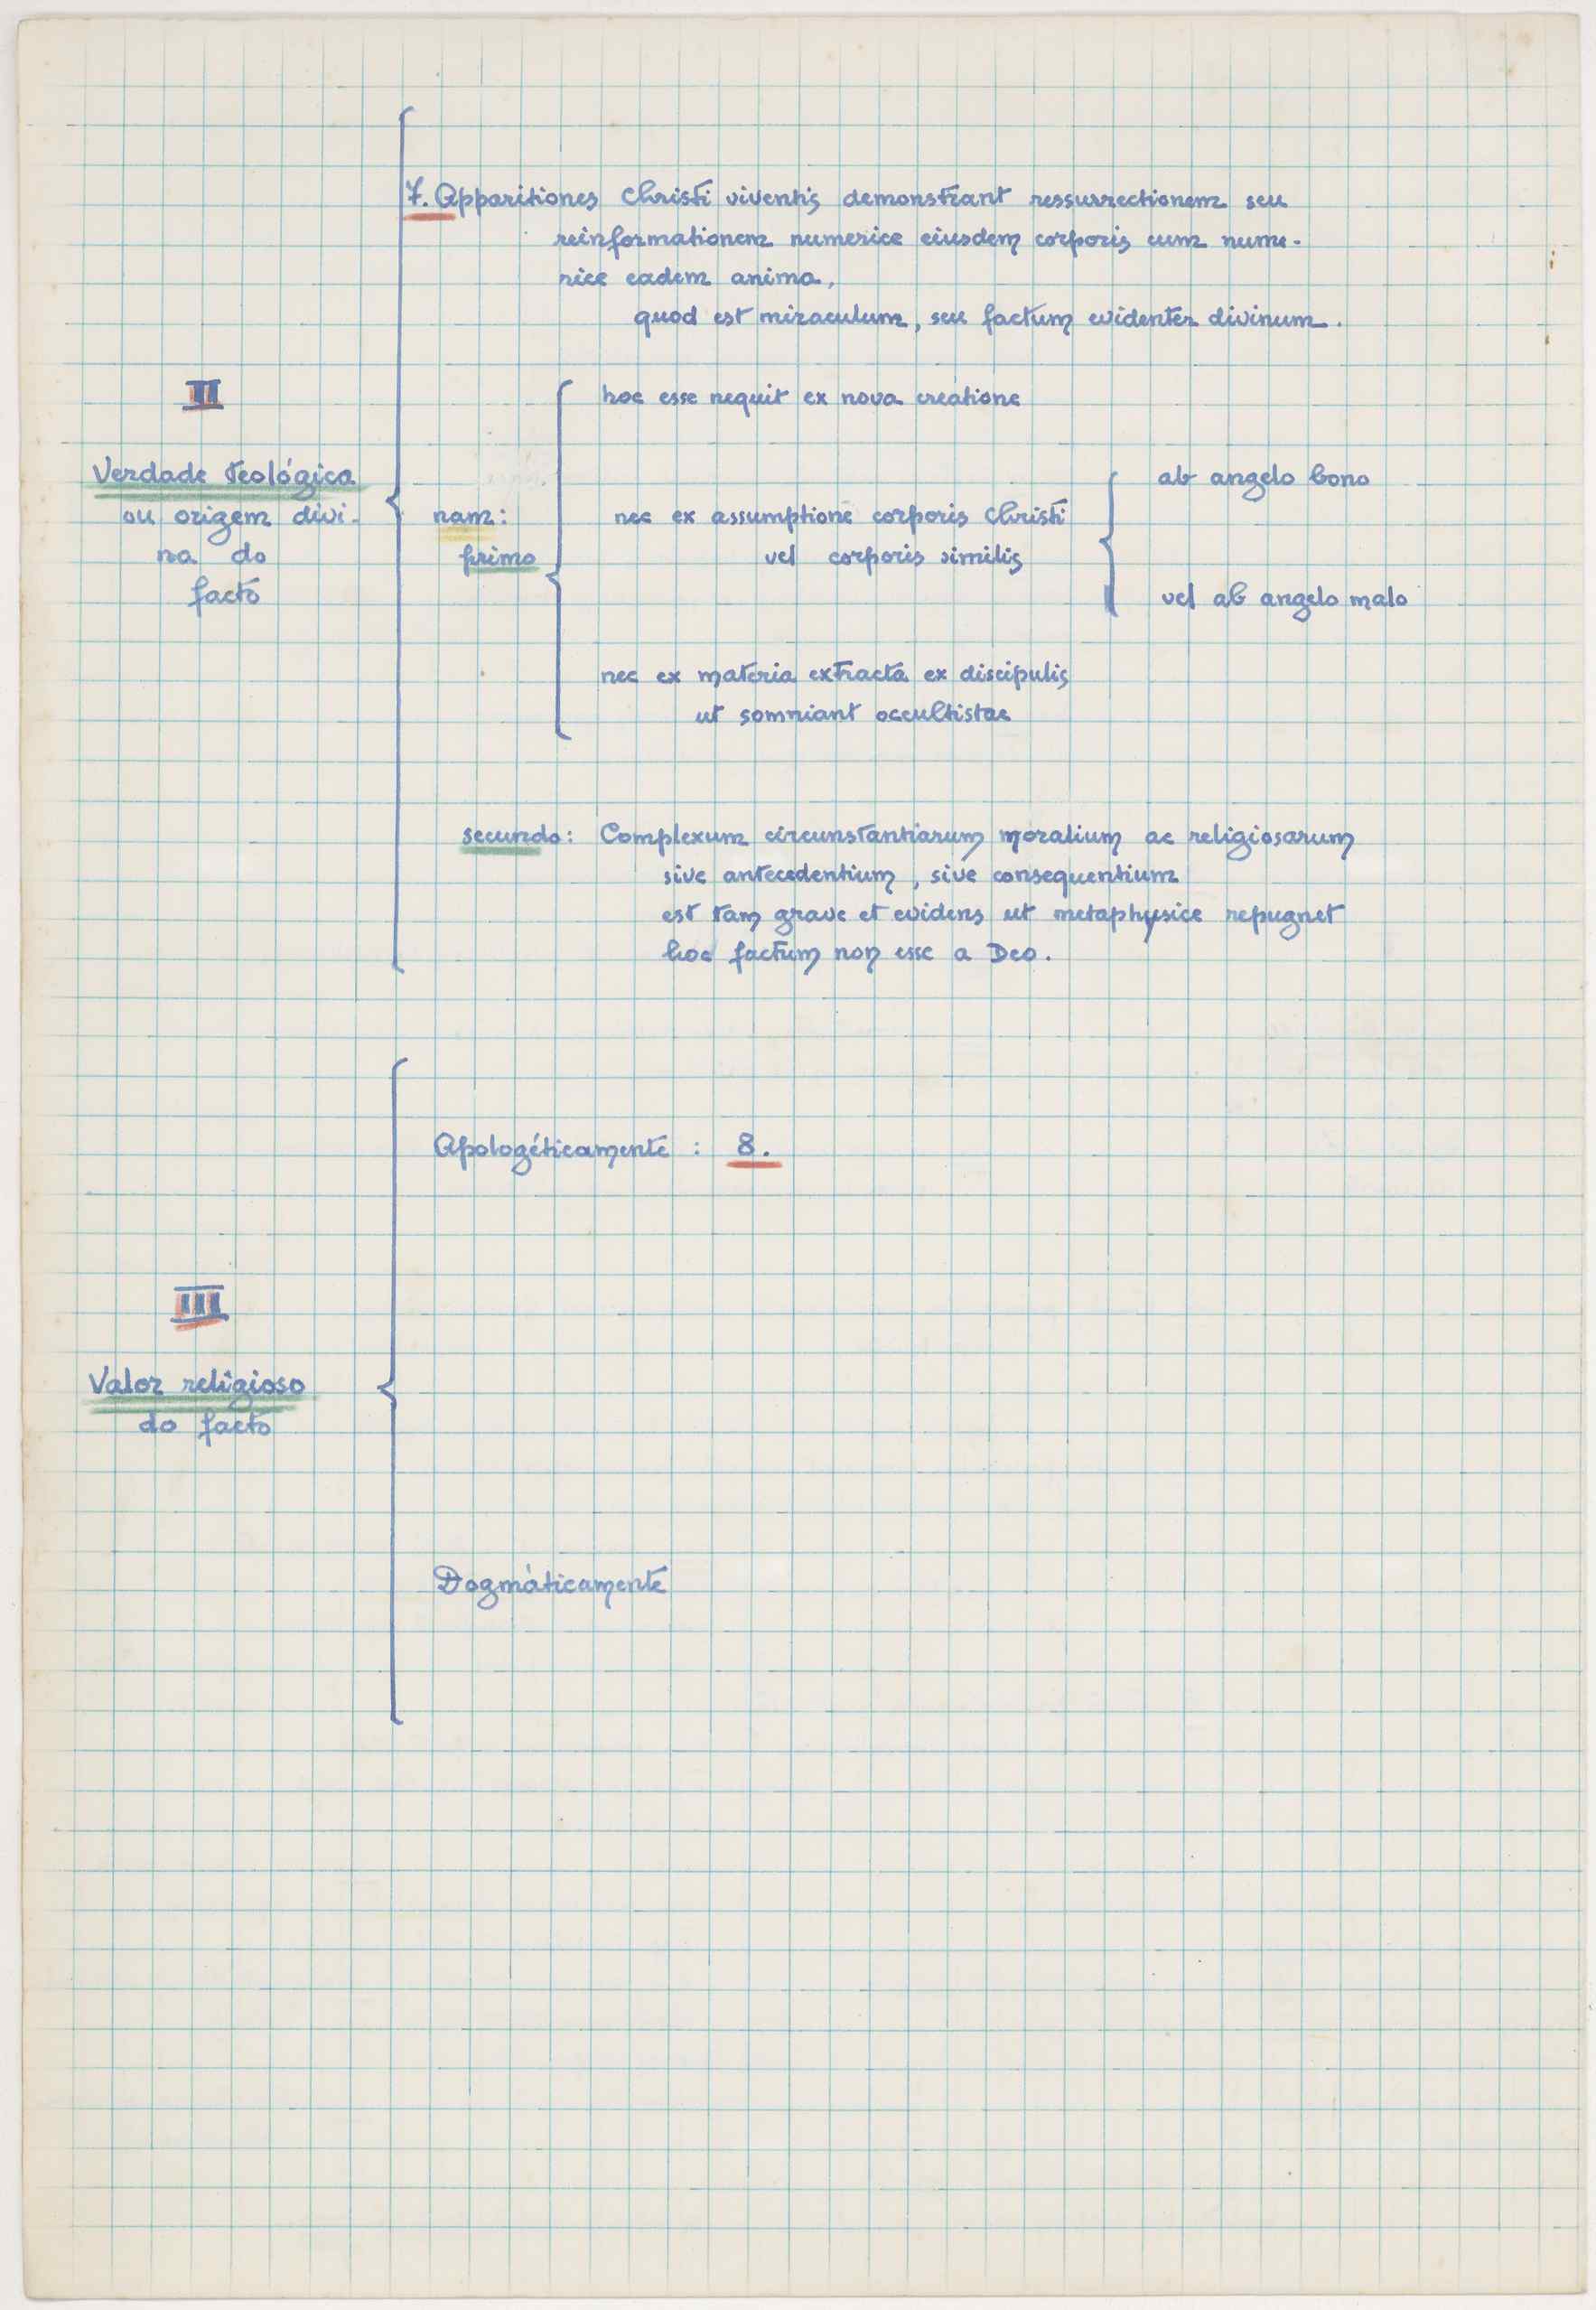 7. Apparitiones Christi viventis demonstrant ressurrectionem seu
reinformationem numerice eiusdem corporis cum nume-
rice eadem anima,
quod est miraculum, seu factum evidenter divinum.
II
Verdade Teológica
ou origem divi-
na do
facto
nam:
primo
hoc esse nequit ex nova creatione
nec ex assumptione corporis Christi
vel corporis similis
ab angelo bono
vel ab angelo malo
nec ex materia extracta ex discipulis
ut somniant occultistae
secundo: Complexum circunstantiarum moralium ac religiosarum
sive antecedentium, sive consequentium
est tam grave et evidens ut metaphysice repugnet
hoc factum non esse a Deo.
III
Valor religioso
do facto
Apologéticamente : 8.
Dogmàticamente